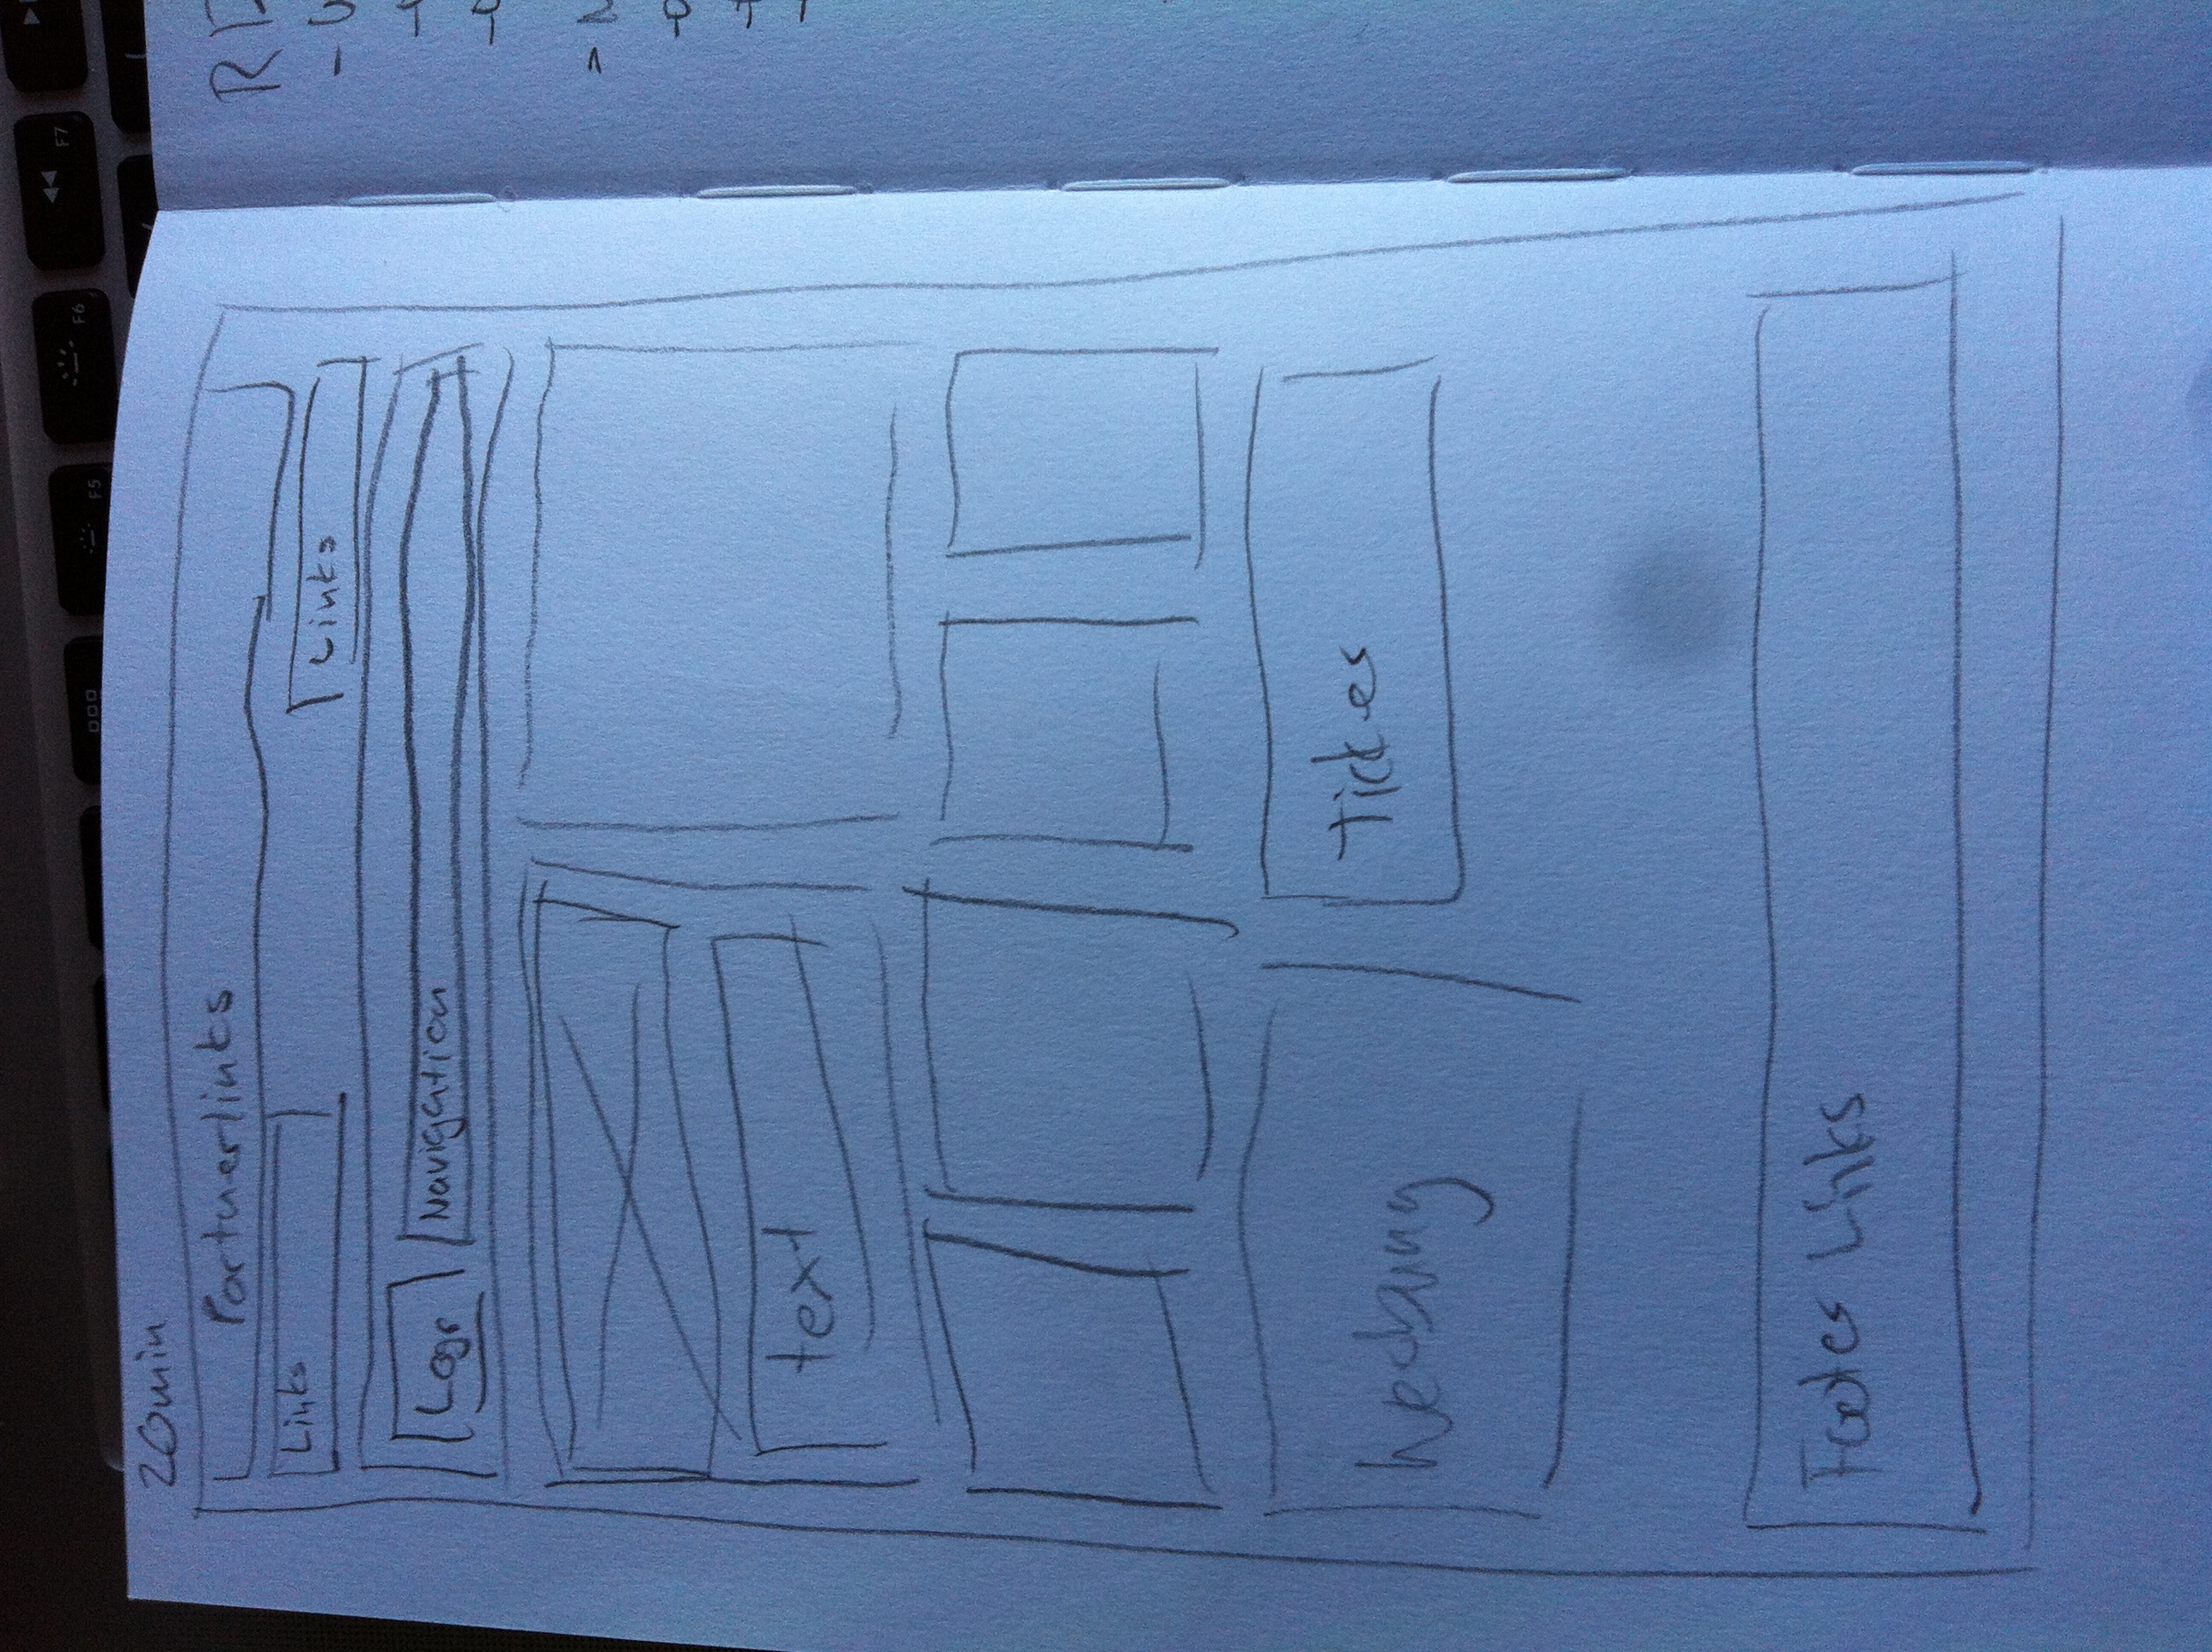 F5
F6
F7
20min
Partnerlinks
Links
Links
Logo
Navigation
text
Werbung
Ticker
Footer Links
R